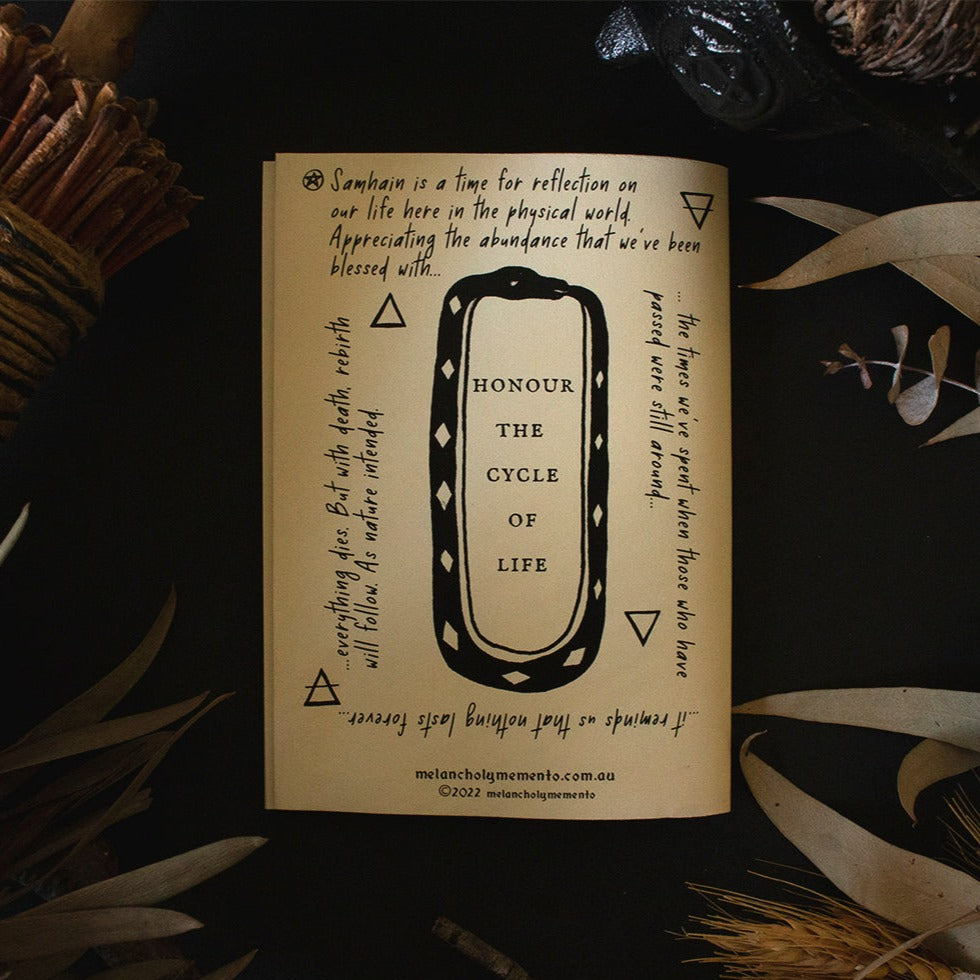 Samhain is a time for reflection on
our life here in the physical world.
Appreciating the abundance that we've been
blessed with...
... the times we've spent when those who have
passed were still around...
...it reminds us that nothing lasts forever...
...everything dies. But with death, rebirth
will follow. As nature intended.
HONOUR
THE
CYCLE
OF
LIFE
melancholymemento.com.au
©2022 melancholymemento